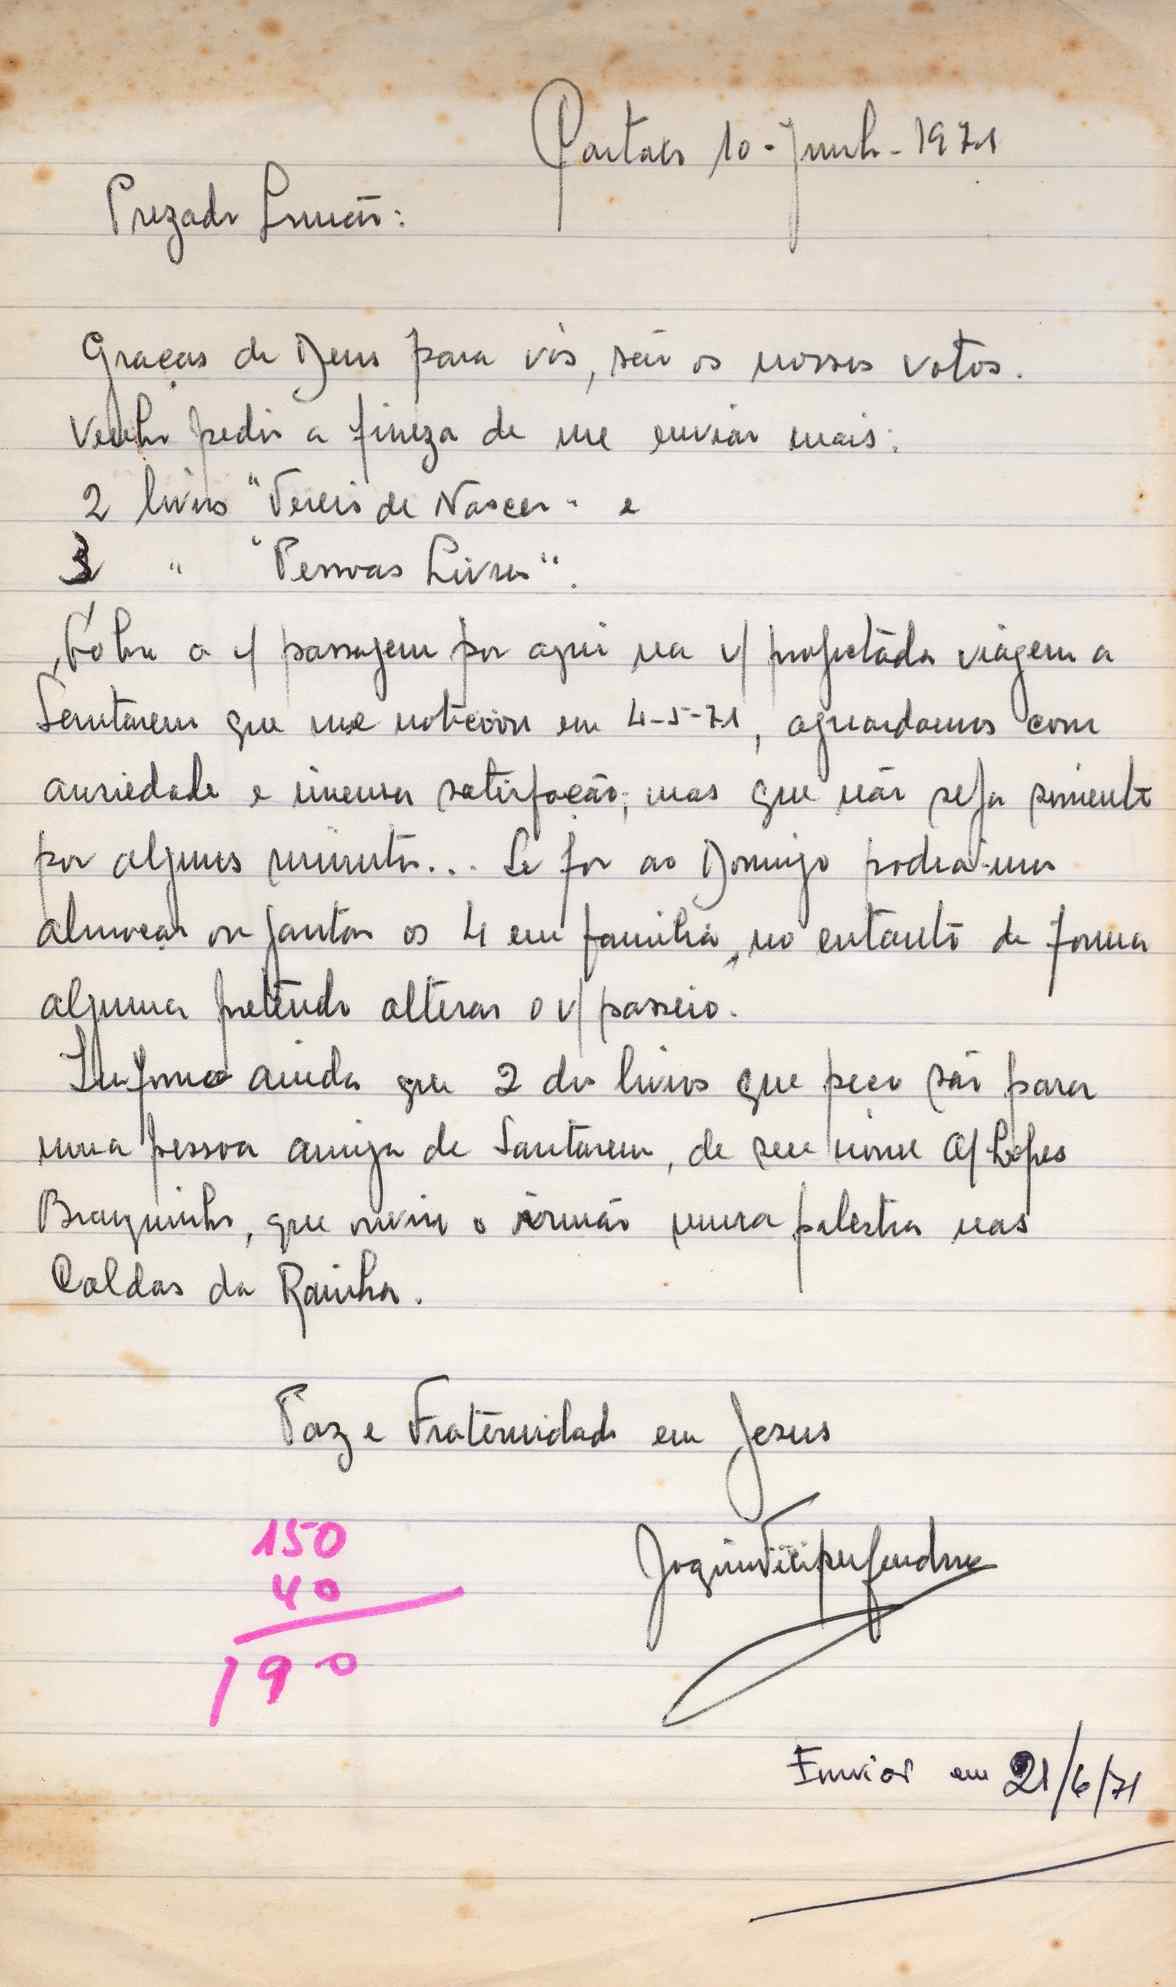 10-Junho-1971
Prezado Irmão:
Graças de Deus para vós, são os nossos votos.
Venho pedir a fineza de me enviar mais:
2 livros "Tereis de Nascer" e
3 " "Pessoas Livres".
Sobre a v/ passagem por aqui na v/ projectada viagem a
Santarem que me noticiou em 4-5-71, aguardamos com
ansiedade e imensa satisfação; mas que não seja sómente
por alguns minutos... Se for ao Domingo podiamos
almoçar ou jantar os 4 em familia, no entanto de forma
alguma pretendo alterar o v/ passeio.
Informo ainda que 2 dos livros que peço são para
uma pessoa amiga de Santarem, de seu nome Lopes
que ouviu o irmão numa palestra nas
Caldas da Rainha.
Paz e Fraternidade em Jesus
150
40
190
Enviar em 21/6/71